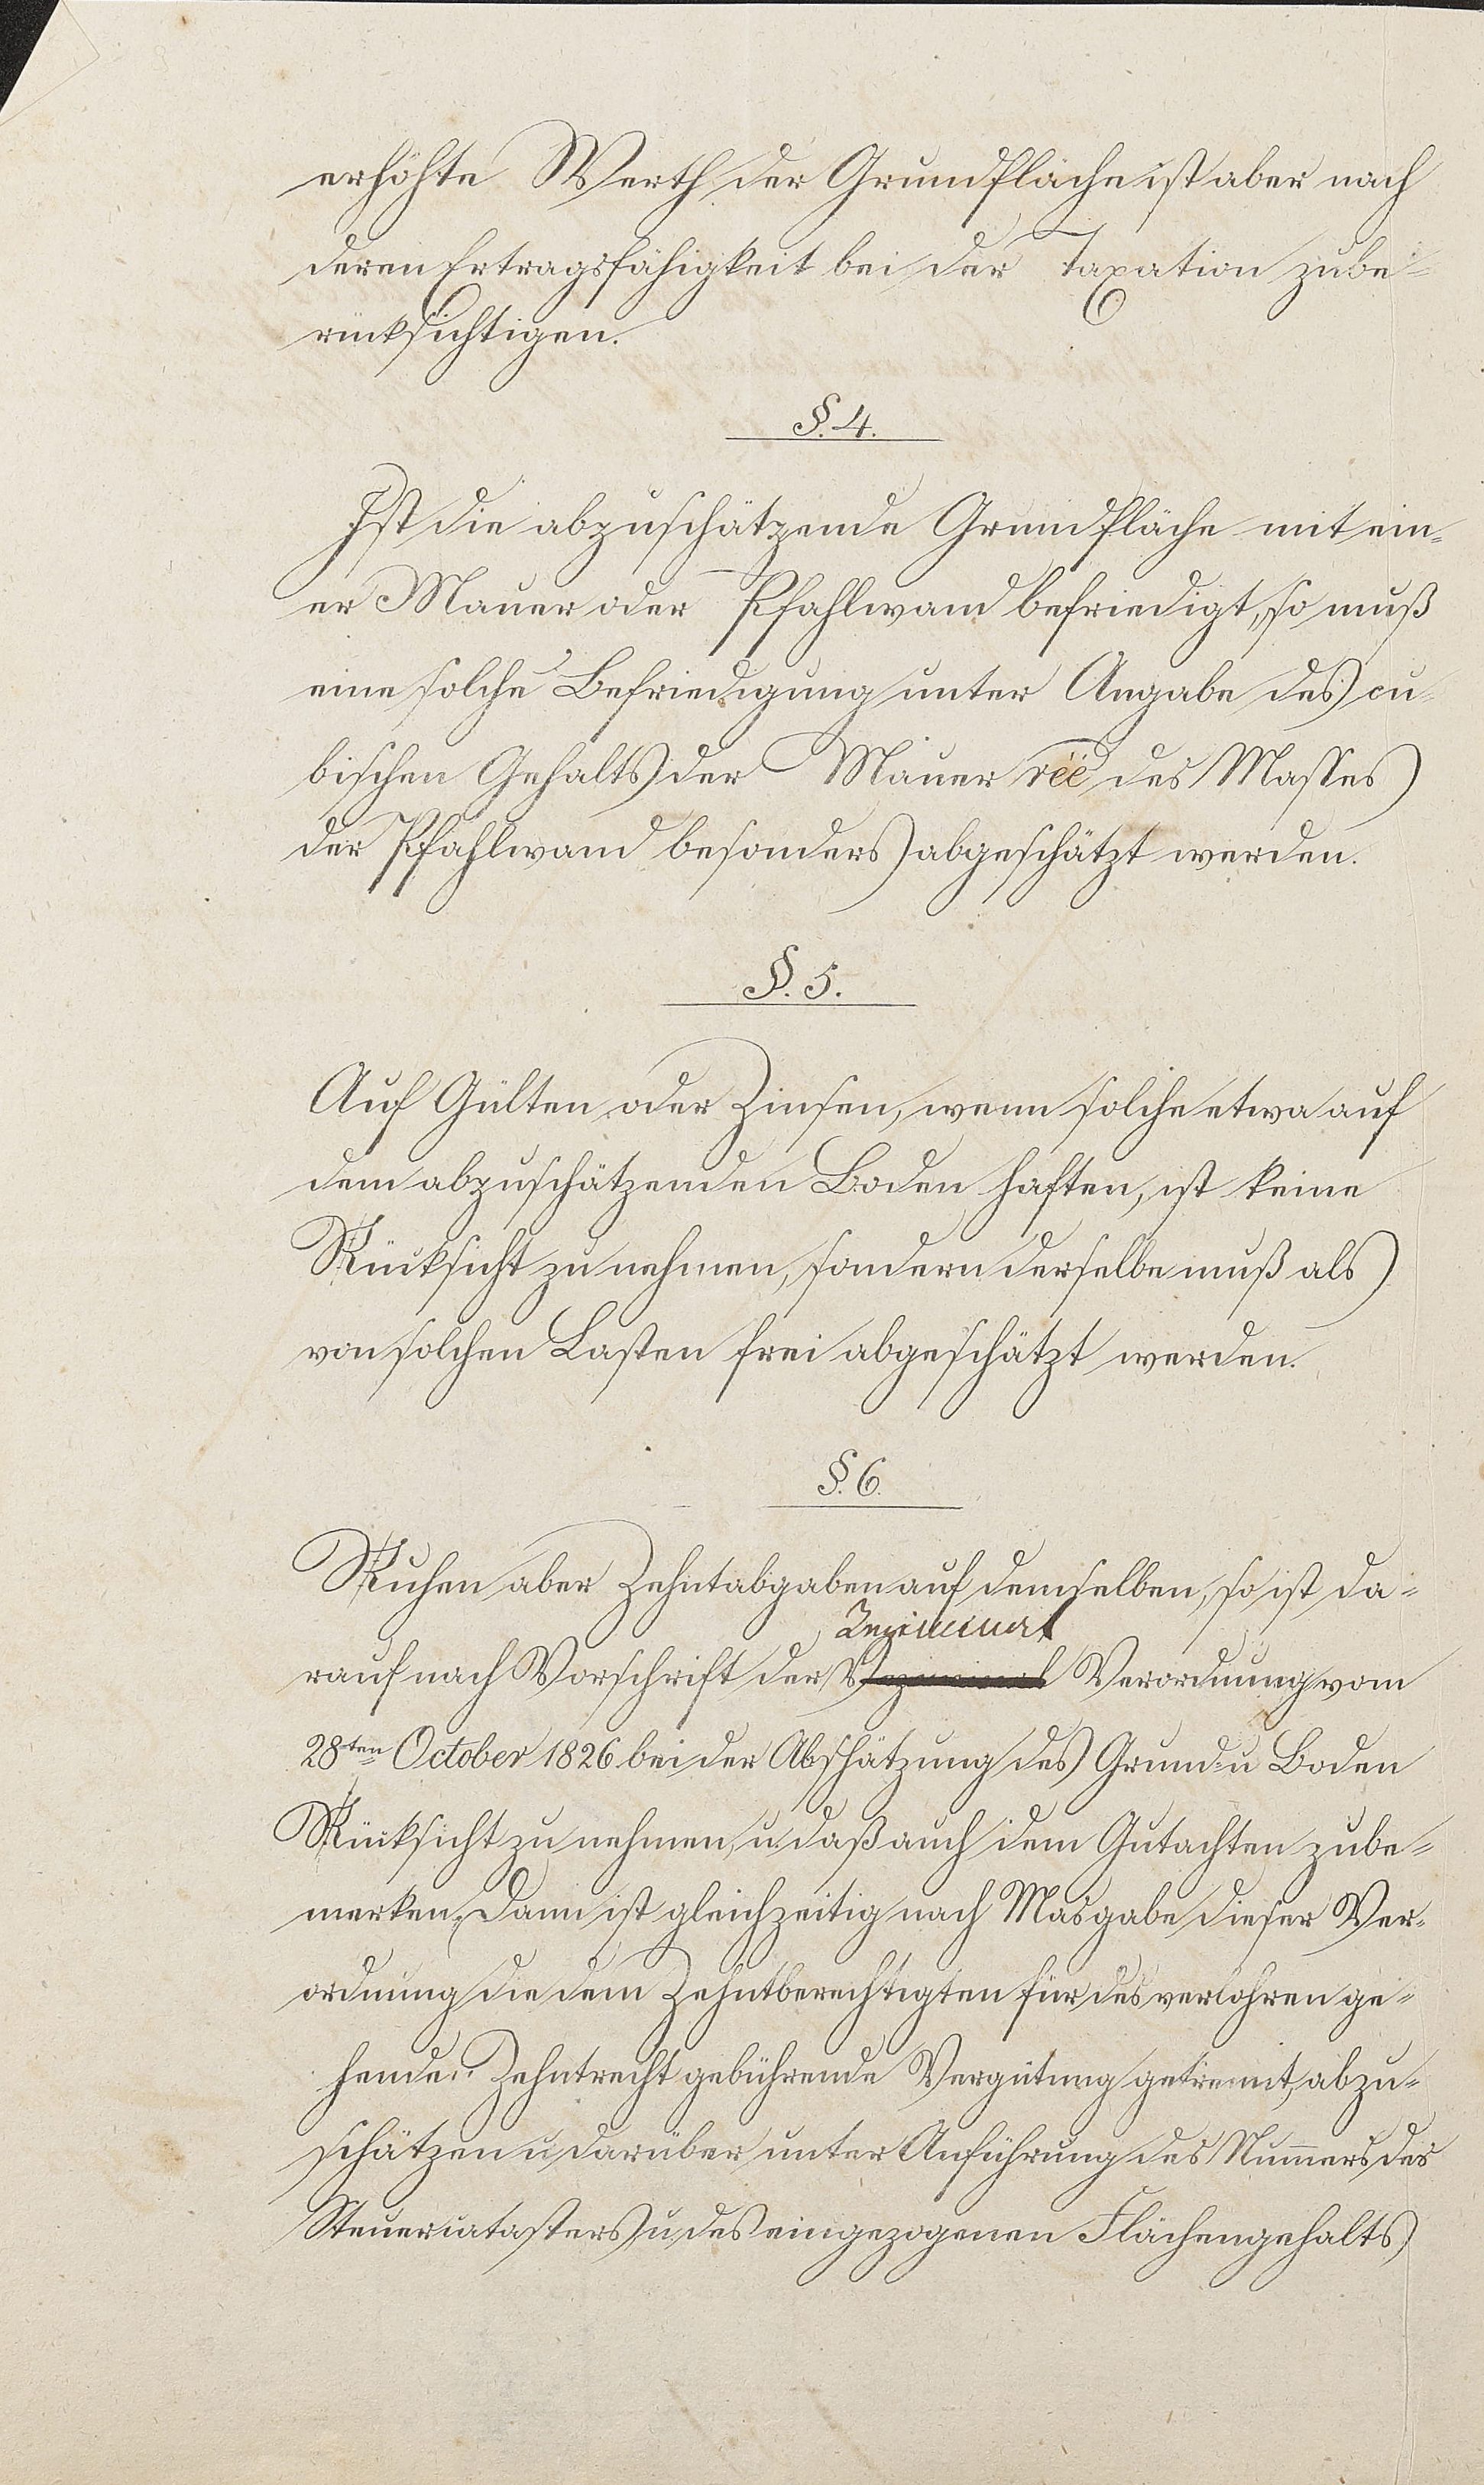 erhöhte Werth der Grundfläche ist aber nach
deren Ertragsfähigkeit bei der Taxation zube-
rücksichtigen.
§. 4.
Ist die abzuschätzende Grundfläche mit ein-
er Mauer oder Pfahlwand befriedigt, so muß
eine solche Befriedigung unter Angabe des cu-
bischen Gehalts der Mauer des Masses
der Pfahlwand besonders abgeschätzt werden.
§. 5.
Auf Gülten oder Zinsen, wenn solche etwa auf
dem abzuschätzenden Boden haften, ist keine
Rücksicht zu nehmen, sondern derselbe muß als
von solchen Lasten frei abgeschätzt werden.
§. 6.
Ruhen aber Zehntabgaben auf demselben, so ist da-
rauf nach Vorschrift der Verordnung vom
28ten October 1826 bei der Abschätzung des Grund u Boden
Rücksicht zu nehmen, u. daß auch dem Gutachten zube-
merken. Dann ist gleichzeitig nach Masgabe dieser Ver-
ordnung die dem Zehntberechtigten für des verlohren ge-
hende Zehntrecht gebührende Vergütung getrennt abzu-
schätzen u. darüber unter Anführung des Num̄ers des
Steuercatasters u. des eingezogenen Flächengehalts